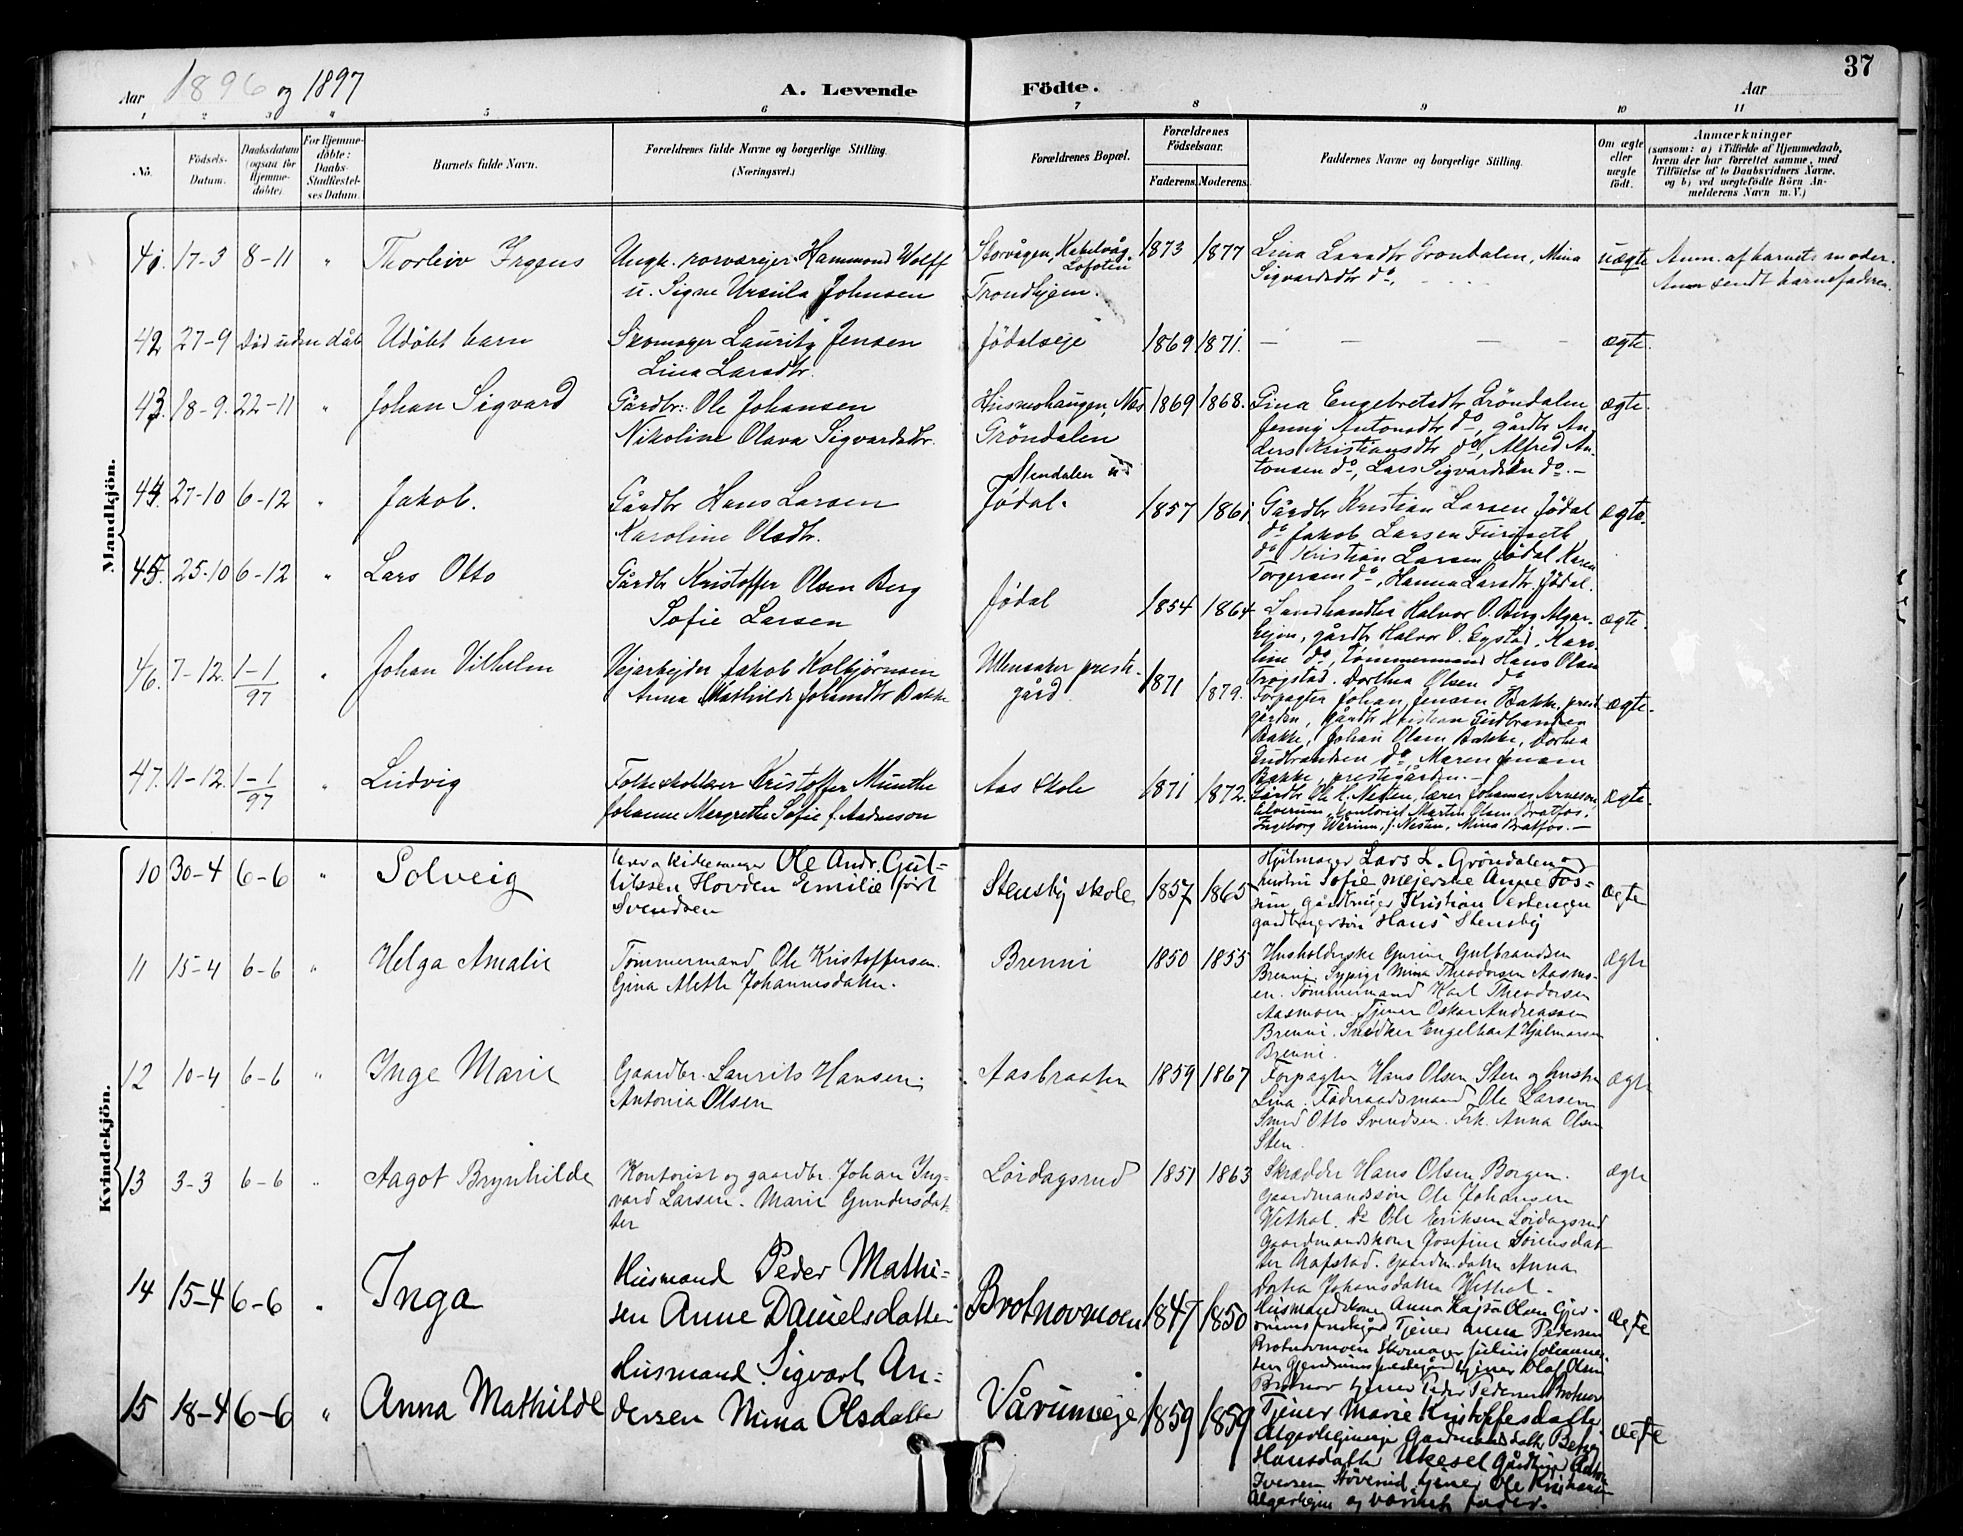 37
Aar 1896 og 1897 A. Levende Födte. Aar
1 2 3 4 5 6 7 8 9 10 11
No. Födsels-Datum. Daabsdatum (ogsaa for Hjemme-döbte) For Hjemme-döbte: Daabs-Stadfæstel-ses Datum. Barnets fulde Navn. Forældrenes fulde Navne og borgerlige Stilling. (Næringsvei.) Forældrenes Bopæl. Forældrenes Födselsaar. Faderens. Moderens. Faddernes Navne og borgerlige Stilling. Om ægte eller uægte födt.
Anmærkninger
(saasom: a) i Tilfælde af Hjemmedaab,
hvem der har forrettet samme, med
Tilföielse af to Daabsvidners Navne,
og b) ved uægtefödte Börn An-
melderens Navn m. V.)
Mandkjön.
41. 17-3 8-11 " Thorleiv Irgens
Ungk. rorværejer Hammond Wolff
u. Signe Ursula Johnsen
Storvågen, Kabelvåg
Lofoten
Trondhjem.
1873 1877
Lina Larsdtr Grøndalen, Mina
Sigvardsdtr do,
uægte
Anm. af barnets moder.
Anm sendt barnefaderen.
42 27-9 Död uden dåb Udöbt barn
Skomager Lauritz Jensen
Lina Larsdtr.
Jödalseje 1869 1871. — — — — ægte.
43. 18-9. 22-11 " Johan Sigvard
Gårdbr: Ole Johansen
Nikoline Olava Sigvardsdtr.
Husmohaugen, Næs
Gröndalen
1869 1868.
Gina Engebretsdtr Gröndalen
Jenny Antonsdtr do, gårdbr An-
ders Kristiansdtr do, Alfred An-
tonsen do, Lars Sigvardsen do. —
ægte.
44. 27-10 6-12 " Jakob.
Gårdbr Hans Larsen
Karoline Olsdtr.
Stendalen
Jödal.
1857 1861.
Gårdbr Kristian Larsen Jödal
do Jakob Larsen Furuseth
do Kristian Larsen Jödal, Karen
Torgersen do, Hanna Larsdtr Jödal.
ægte.
45. 25-10 6-12 " Lars Otto
Gårdbr Kristoffer Olsen Berg
Sofie Larsen
Jödal 1854 1864
Landhandler Halvor O. Berg Algar-
heim, gårdbr Halvor O. Gystad, Karo-
line do, tömmermand Hans Olsen
Trogstad. Dorthea Olsen do
ægte.
46. 7-12. 1-1/97 " Johan Vilhelm
Vejarbejder Jakob Kolbjørnsen
Anna Mathilde Johansdtr Bakke
Ullensaker preste-
gård
1871 1879.
Forpagter Johan Jensen Bakke, prest-
gården, gårdbr Kristian Gudbrandsen
Bakke, Johan Olsen Bakke, Dorthea
Gudbrandsen do, Maren Jensen
Bakke, prestegården. —
ægte.
47. 11-12. 1-1/97 " Ludvig
Folkeskolelærer Kristoffer Munthe
Johanne Margrethe Sofie f. Anderson
Aas skole 1871 1872.
Gårdbr Ole H. Nesten, lærer Johannes Arneson,
Elverum, kontorist Martin Olsen, Bratfos,
Ingeborg Werium, f. Nesten, Mina Bratfos. —
ægte.
Kvindekjön.
10 30-4 6-6 " Solveig
lærer og kirkesanger Ole Andr. Gul-
liksen Hovden Emilie født
Svendsen
Stensby skole 1857 1865
Hjulmager Lars L. Gröndalen og
hustru Sofie, mejerske Anne Fos-
sum gårdbruger Kristian Vestengen
gårdbrugersön Hans Stensby
ægte
11 15-4 6-6 " Helga Amalie
Tømmermand Ole Kristoffersen.
Gina Alette Johannesdatter.
Brenni 1850 1855
Husholderske Gurine Gulbrandsen
Brenni. Sypige Mina Theodorsen Aasmo-
en. Tømmermand Karl Theodorsen
Aasmoen. Tjener Oskar Andreassen
Brenni. Snedker Engelhart Hjalmarsen
Brenni.
ægte
12 10-4 6-6 " Inge Marie
Gaardbr. Laurits Hansen.
Antonia Olsen
Aasbraaten 1859 1867
Forpagter Hans Olsen Sten og hustru
Lina. Föderaadsmand Ole Larsen
Smed Otto Svendsen. Frk. Anna Olsen
Sten.
ægte
13 3-3 6-6 " Aagot Brynhilde
Kontorist og gaardbr. Johan Ing-
vard Larsen. Marie Gundersdat-
ter
Løidagsrud 1851 1863
Skrædder Hans Olsen Borgen.
Gaardmandssøn Ole Johansen
Wethal. Do Ole Eriksen Løidagsrud
Gaardmandskone Josefine Sørensdat-
ter Rafstad. Gaardm.datter Anna
Dortea Johansdatter Wethal.
ægte
14 15-4 6-6 " Inga
Husmand Peder Mathi-
sen Anne Danielsdatter
Brotnovmoen 1847 1850
Husmandskone Anna Kajsa Olsen Gjer-
drums prestegård, Tjener Anna Pedersen
Brotnovmoen Skomager Julius Johannes-
sen Gjerdrums prestegård tjener Olaf Olsen
Brotnov tjener Peder Pedersen Brotnov
ægte
15 18-4 6-6 " Anna Mathilde
Husmand Sigvart An-
dersen Mina Olsdatter
Vårumseje 1859 1859
Tjener Marie Kristoffersdatter
Algarheimseje Gårdmandsdatter Betzy
Hansdatter Ukesel Gårdbruger Anton
Iversen Støverud, tjener Ole Kristiansen
Algarheim og barnets fader.
ægte